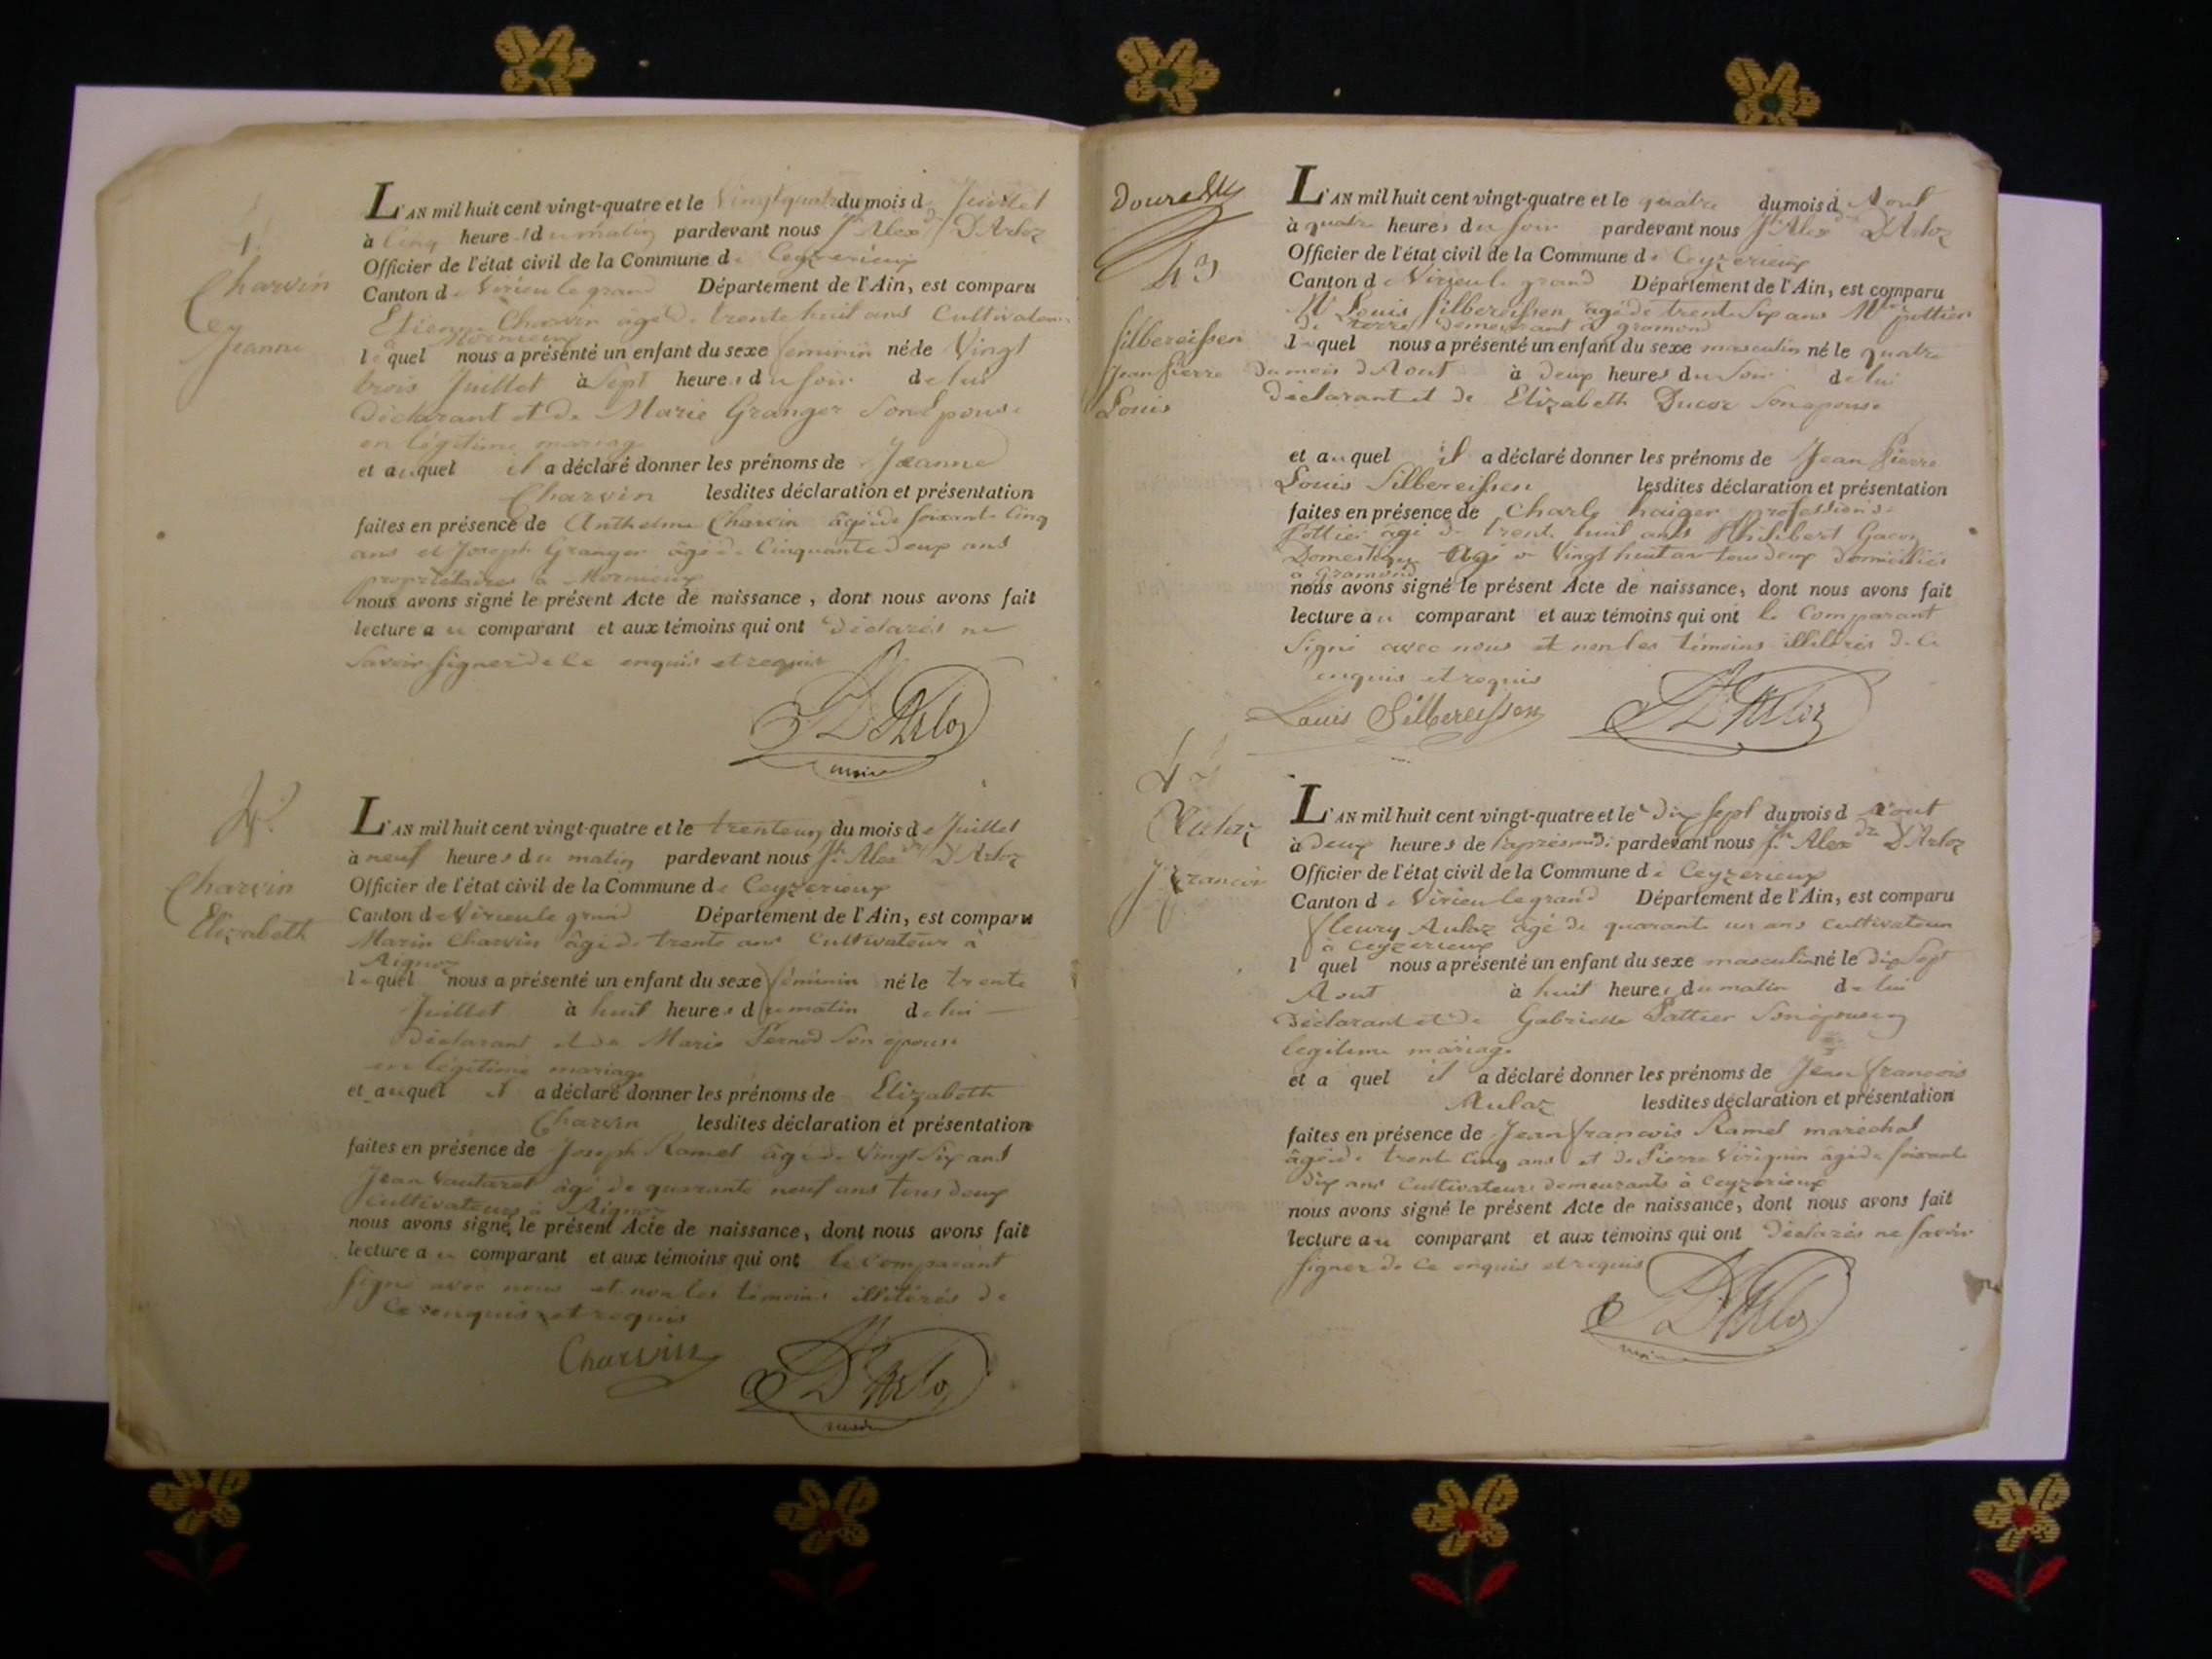 Charvin
Jeanne
L'AN mil huit cent vingt-quatre et le Vingt quatre du mois d Juillet
à Cinq heures du matin pardevant nous Jh Alexdre D'Arloz
Officier de l'état civil de la Commune de Ceyzerieux
Canton de Virieu le grand Département de l'Ain, est comparu
Etienne Charvin âgé de trente huit ans Cultivateur
à Mornieux
lequel nous a présenté un enfant du sexe feminin né le Vingt
trois Juillet à Sept heures du soir de lui
déclarant et de Marie Granger Son Epouse
en légitime mariage
et auquel il a déclaré donner les prénoms de Jeanne
Charvin lesdites déclaration et présentation
faites en présence de Anthelme Charvin âgé de soixante Cinq
ans et Joseph Granger âgé de Cinquante deux ans
propriétaires à Mornieux
nous avons signé le présent Acte de naissance, dont nous avons fait
lecture au comparant et aux témoins qui ont déclarés ne
Savoir signer de Ce enquis et requis
D'Arloz
maire
Charvin
Elizabeth
L'AN mil huit cent vingt-quatre et le trente un du mois de Juillet
à neuf heures du matin pardevant nous Jh Alexdre D'Arloz
Officier de l'état civil de la Commune de Ceyzerieux
Canton de Virieu le grand Département de l'Ain, est comparu
Marin Charvin âgé de trente ans Cultivateur à
Aignoz
lequel nous a présenté un enfant du sexe féminin né le trente
Juillet à huit heures du matin de lui
Déclarant et de Marie Pernod Son épouse
en légitime mariage
et auquel il a déclaré donner les prénoms de Elizabeth
Charvin lesdites déclaration et présentation
faites en présence de Joseph Ramel âgé de Vingt Six ans
Jean Vautaret âgé de quarante neuf ans tous deux
Cultivateurs à Aignoz
nous avons signé le présent Acte de naissance, dont nous avons fait
lecture au comparant et aux témoins qui ont le Comparant
signé avec nous et non les témoins illitérés de
Ce enquis et requis
Charvin D'Arloz
maire
43
Silbereissen
Jean Pierre
Louis
L'AN mil huit cent vingt-quatre et le quatre du mois d Aout
à quatre heures du soir pardevant nous Jh Alexdre D'Arloz
Officier de l'état civil de la Commune de Ceyzerieux
Canton de Virieu le grand Département de l'Ain, est comparu
Mr Louis Silbereissen âgé de trente Six ans Mtre pottier
de terre demeurant à gramond
lequel nous a présenté un enfant du sexe masculin né le quatre
du mois d'Aout à deux heures du Soir de lui
déclarant et de Elizabeth Ducor Son epouse
et auquel il a déclaré donner les prénoms de Jean Pierre
Louis Silbereissen lesdites déclaration et présentation
faites en présence de Charle haiger profession de
Pottier âgé de trente huit ans Philibert Gacon
Domestique âgé de Vingt huit ans tous deux domiciliés
à Gramond
nous avons signé le présent Acte de naissance, dont nous avons fait
lecture au comparant et aux témoins qui ont le Comparant
Signé avec nous et non les témoins illitérés de Ce
enquis et requis
Louis Silbereissen D'Arloz
Aulaz
J francois
L'AN mil huit cent vingt-quatre et le dix sept du mois d Aout
à deux heures de l'aprèsmidi pardevant nous Jh Alexdre D'Arloz
Officier de l'état civil de la Commune de Ceyzerieux
Canton de Virieu le grand Département de l'Ain, est comparu
fleury Aulaz âgé de quarante un ans cultivateur
à Ceyzerieux
l quel nous a présenté un enfant du sexe masculin né le dix Sept
Aout à huit heures du matin de lui
Déclarant et de Gabrielle Pattier Son épouse en
legitime mariage
et a quel il a déclaré donner les prénoms de Jean francois
Aulaz lesdites déclaration et présentation
faites en présence de Jean francois Ramel maréchal
âgé de trente Cinq ans et de Pierre Viriguin âgé de soixante
Dix ans Cultivateurs demeurants à Ceyzerieux
nous avons signé le présent Acte de naissance, dont nous avons fait
lecture au comparant et aux témoins qui ont déclarés ne Savoir
signer de Ce enquis et requis
D'Arloz
maire